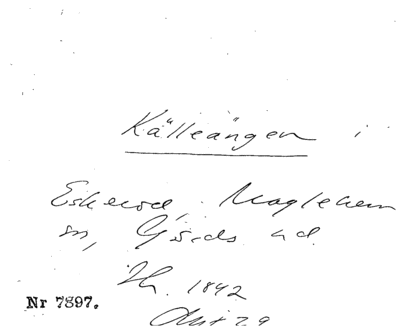 Källeängen i
Eskerod, Maglehem
sn, Gärds hd.
1842
Nr 7897.